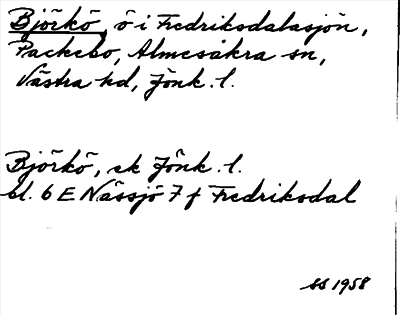 Björkö, ö i Fredriksdalasjön,
Packebo, Almesåkra sn,
Västra hd, Jönk. l.
Björkö, ek Jönk. l.
bl. 6 E Nässjö 7 f Fredriksdal
SS 1958